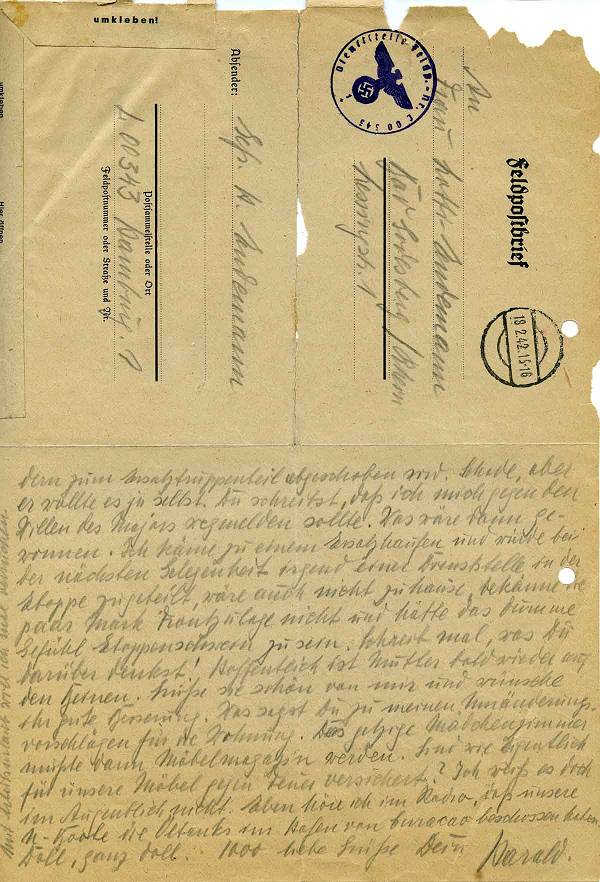 umkleben!
Absender:
L 00343 Hamburg. 1
Postsammelstelle oder Ort
Feldpostnummer oder Straße und Nr.
Dienststelle Feldp.-Nr. L 00 343
Feldpostbrief
An
Frau
Bad Godesberg / Rhein
18.2.42.15-16
umkleben
Hier öffnen
dern zum Ersatztruppenteil abgeschoben wird. Schade, aber
er wollte es ja selbst. Du schreibst, daß ich mich gegen den
Willen des Majors wegmelden sollte. Was wäre dann ge-
wonnen. Ich käme zu einem Ersatzhaufen und würde bei
der nächsten Gelegenheit irgend einer Dienststelle in der
Etappe zugeteilt, wäre auch nicht zuhause, bekäme die
paar Mark Frontzulage nicht und hätte das dumme
Gefühl Etappenschwein zu sein. Schreib mal, was Du
darüber denkst! Hoffentlich ist Mutter bald wieder auf
den Beinen. Grüße sie schön von mir und wünsche
ihr gute Besserung. Was sagst Du zu meinen Umänderungs-
vorschlägen für die Wohnung. Das jetzige Mädchenzimmer
müßte dann Möbelmagazin werden. Sind wir eigentlich
für unsere Möbel gegen Feuer versichert? Ich weiß es doch
im Augenblick nicht. Eben höre ich im Radio, daß unsere
U-Boote die Öltanks im Hafen von Curacao beschossen haben.
Doll, ganz doll. 1000 liebe Grüße Dein Harald.